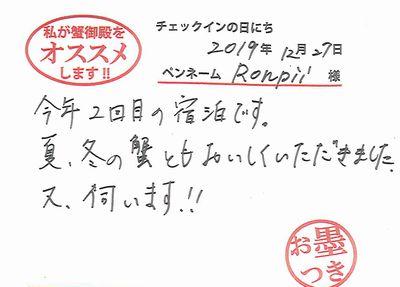 私が蟹御殿を
オススメ
します!!
チェックインの日にち
2019年 12月27日
ペンネーム Ronpii 様
今年2回目の宿泊です。
夏、冬の蟹ともおいしくいただきました。
又、伺います!!
お墨
つき